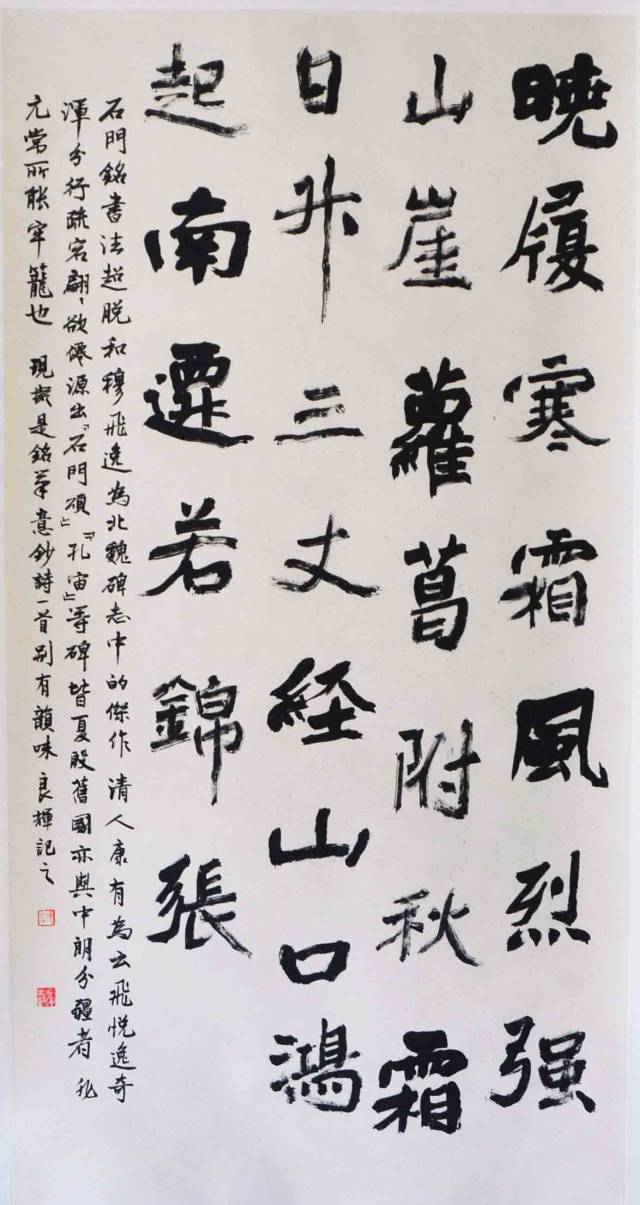 曉履寒霜風烈强
山崖蘿葛附秋霜
日升三丈経山口鴻
起南遷若錦張
石門銘書法超脱和穆飛逸為北魏碑志中的傑作清人康有為云飛悦逸奇
渾分行疏宕翩〻欲僊源出『石門頌』『孔宙』等碑皆夏殷舊國亦與中朗分疆者非
元常所能牢籠也 現擬是銘筆意鈔詩一首别有韻味 良輝記之